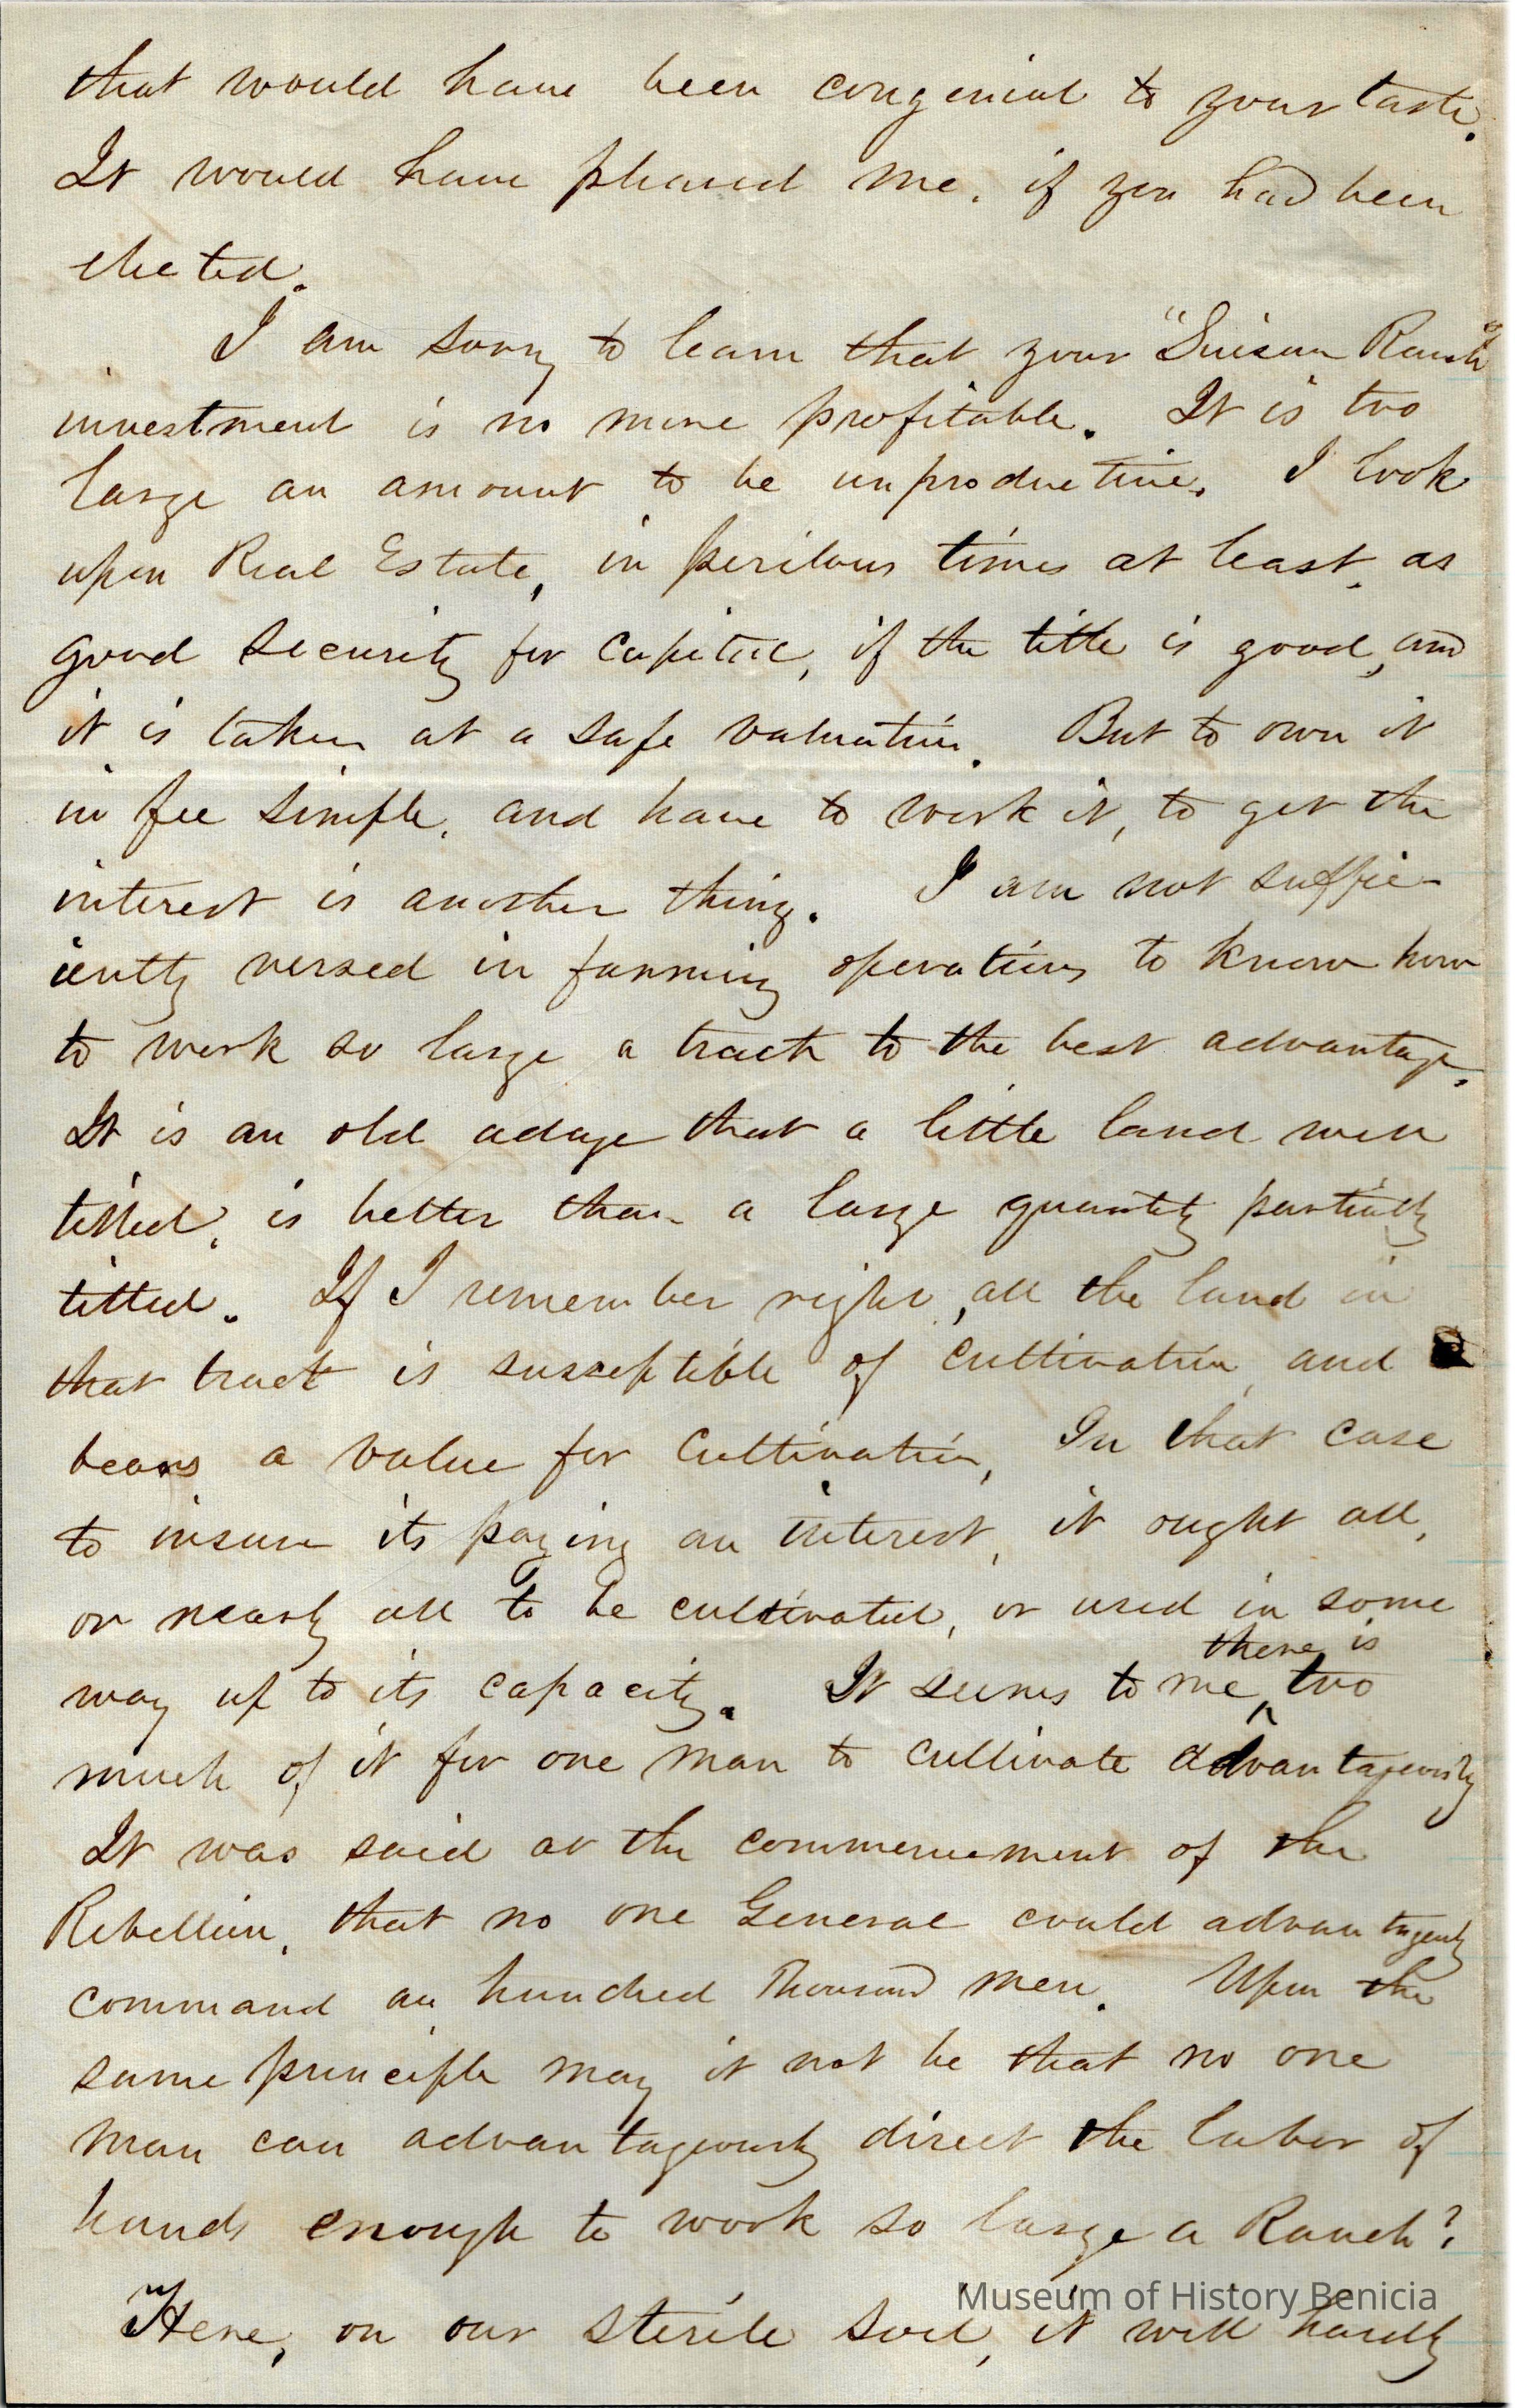 that would have been congenial to your taste.
It would have pleased me, if you had been
elected.
I am sorry to learn that your "Suisun Ranch"
investment is no more profitable. It is too
large an amount to be unproductive. I look
upon Real Estate, in perilous times at least, as
good security for capital, if the title is good, and
it is taken at a safe valuation. But to own it
in fee simple, and have to work it, to get the
interest is another thing. I am not suffic-
iently versed in farming operations to know how
to work so large a tract to the best advantage.
It is an old adage that a little land well
tilled, is better than a large quantity partially
tilled. If I remember right, all the land in
that tract is susceptible of cultivation, and
bears a value for cultivation, In that case
to insure its paying an interest, it ought all,
or nearly all to be cultivated, or used in some
there is
way up to its capacity. It seems to me ^ too
much of it for one man to cultivate advantageously
It was said at the commencement of the
Rebellion, that no one General could advantagently
command an hundred Thousand men. Upon the
same principle may it not be that no one
man can advantageously direct the labor of
hands enough to work so large a Ranch?
Museum of History Benicia
Here, on our sterile soil, it will hardly